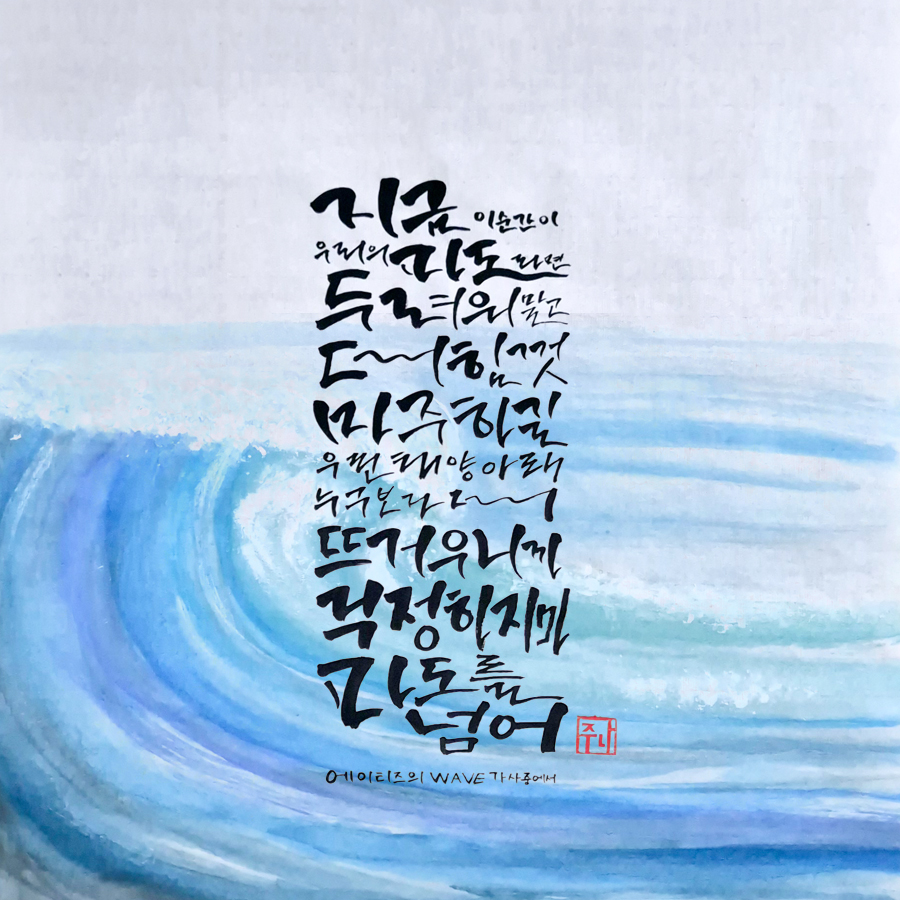 지금 이순간이
우리의 파도라면
두려워 말고
더 힘껏
마주하길
우린 태양아래
누구보다 더
뜨거우니까
걱정하지마
파도를
넘어
주나
에이티즈의 WAVE 가사중에서